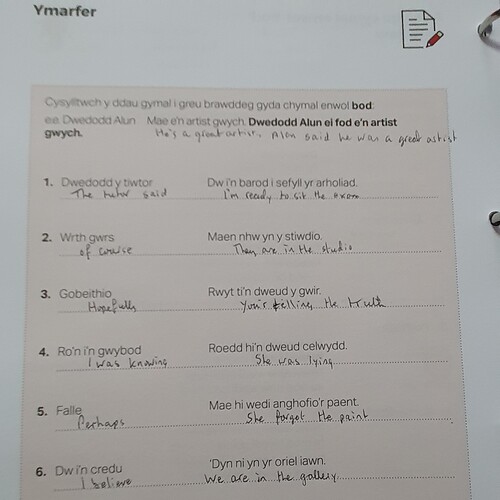 Ymarfer
Cysylltwch y ddau gymal i greu brawddeg gyda chymal enwol bod:
e.e. Dwedodd Alun Mae e'n artist gwych. Dwedodd Alun ei fod e'n artist
gwych. He's a great artist. Alun said he was a great artist
1. Dwedodd y tiwtor Dw i'n barod i sefyll yr arholiad.
The tutor said I'm ready to sit the exam
2. Wrth gwrs Maen nhw yn y stiwdio.
of course They are in the studio
3. Gobeithio Rwyt ti'n dweud y gwir.
Hopefully You're telling the truth
4. Ro'n i'n gwybod Roedd hi'n dweud celwydd.
I was knowing She was lying
5. Falle Mae hi wedi anghofio'r paent.
Perhaps She forgot the paint
6. Dw i'n credu 'Dyn ni yn yr oriel iawn.
I believe We are in the gallery